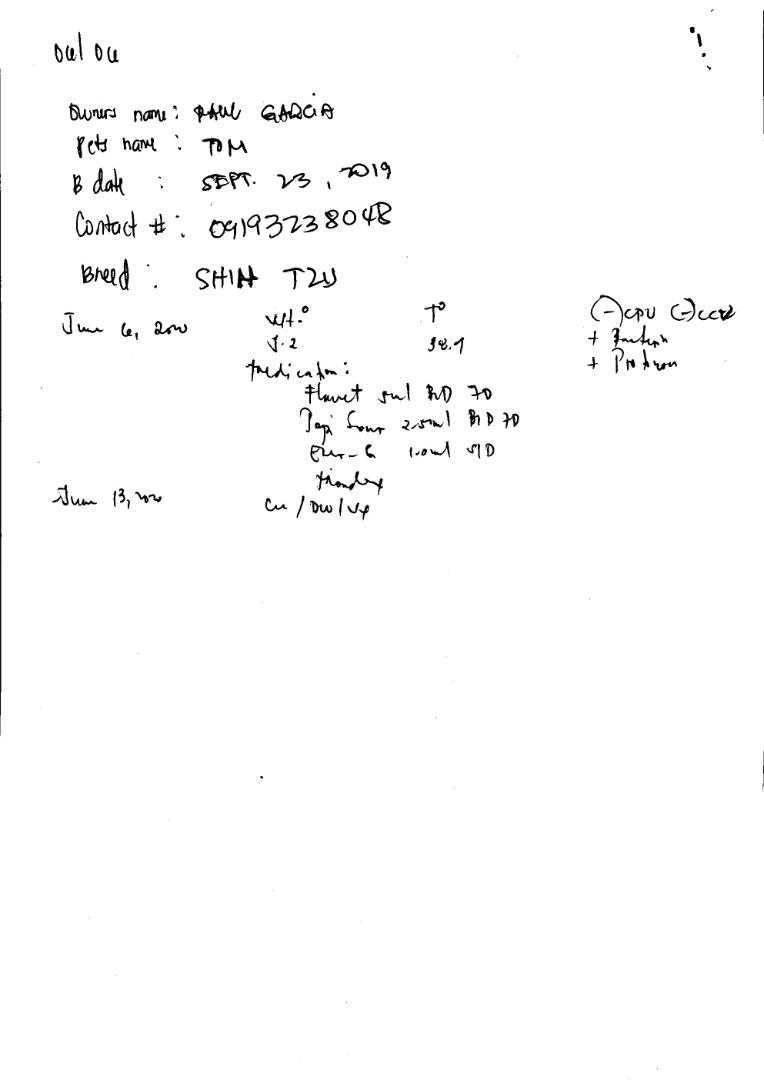 Owners name: PAUL GARCIA
Pets name : TOM
B date : SEPT. 23, 2019
Contact #: 09193238048
Breed : SHIH TZU
June 6, 2020 wt.° T° (-) CPV (-) CCV
5.2 38.9 + Bacteria
Medication: + Protozoa
Flavet 5ml BID 7D
Papi 2.5ml BID 7D
1.0ml SID
June 13, 2020 /DW/